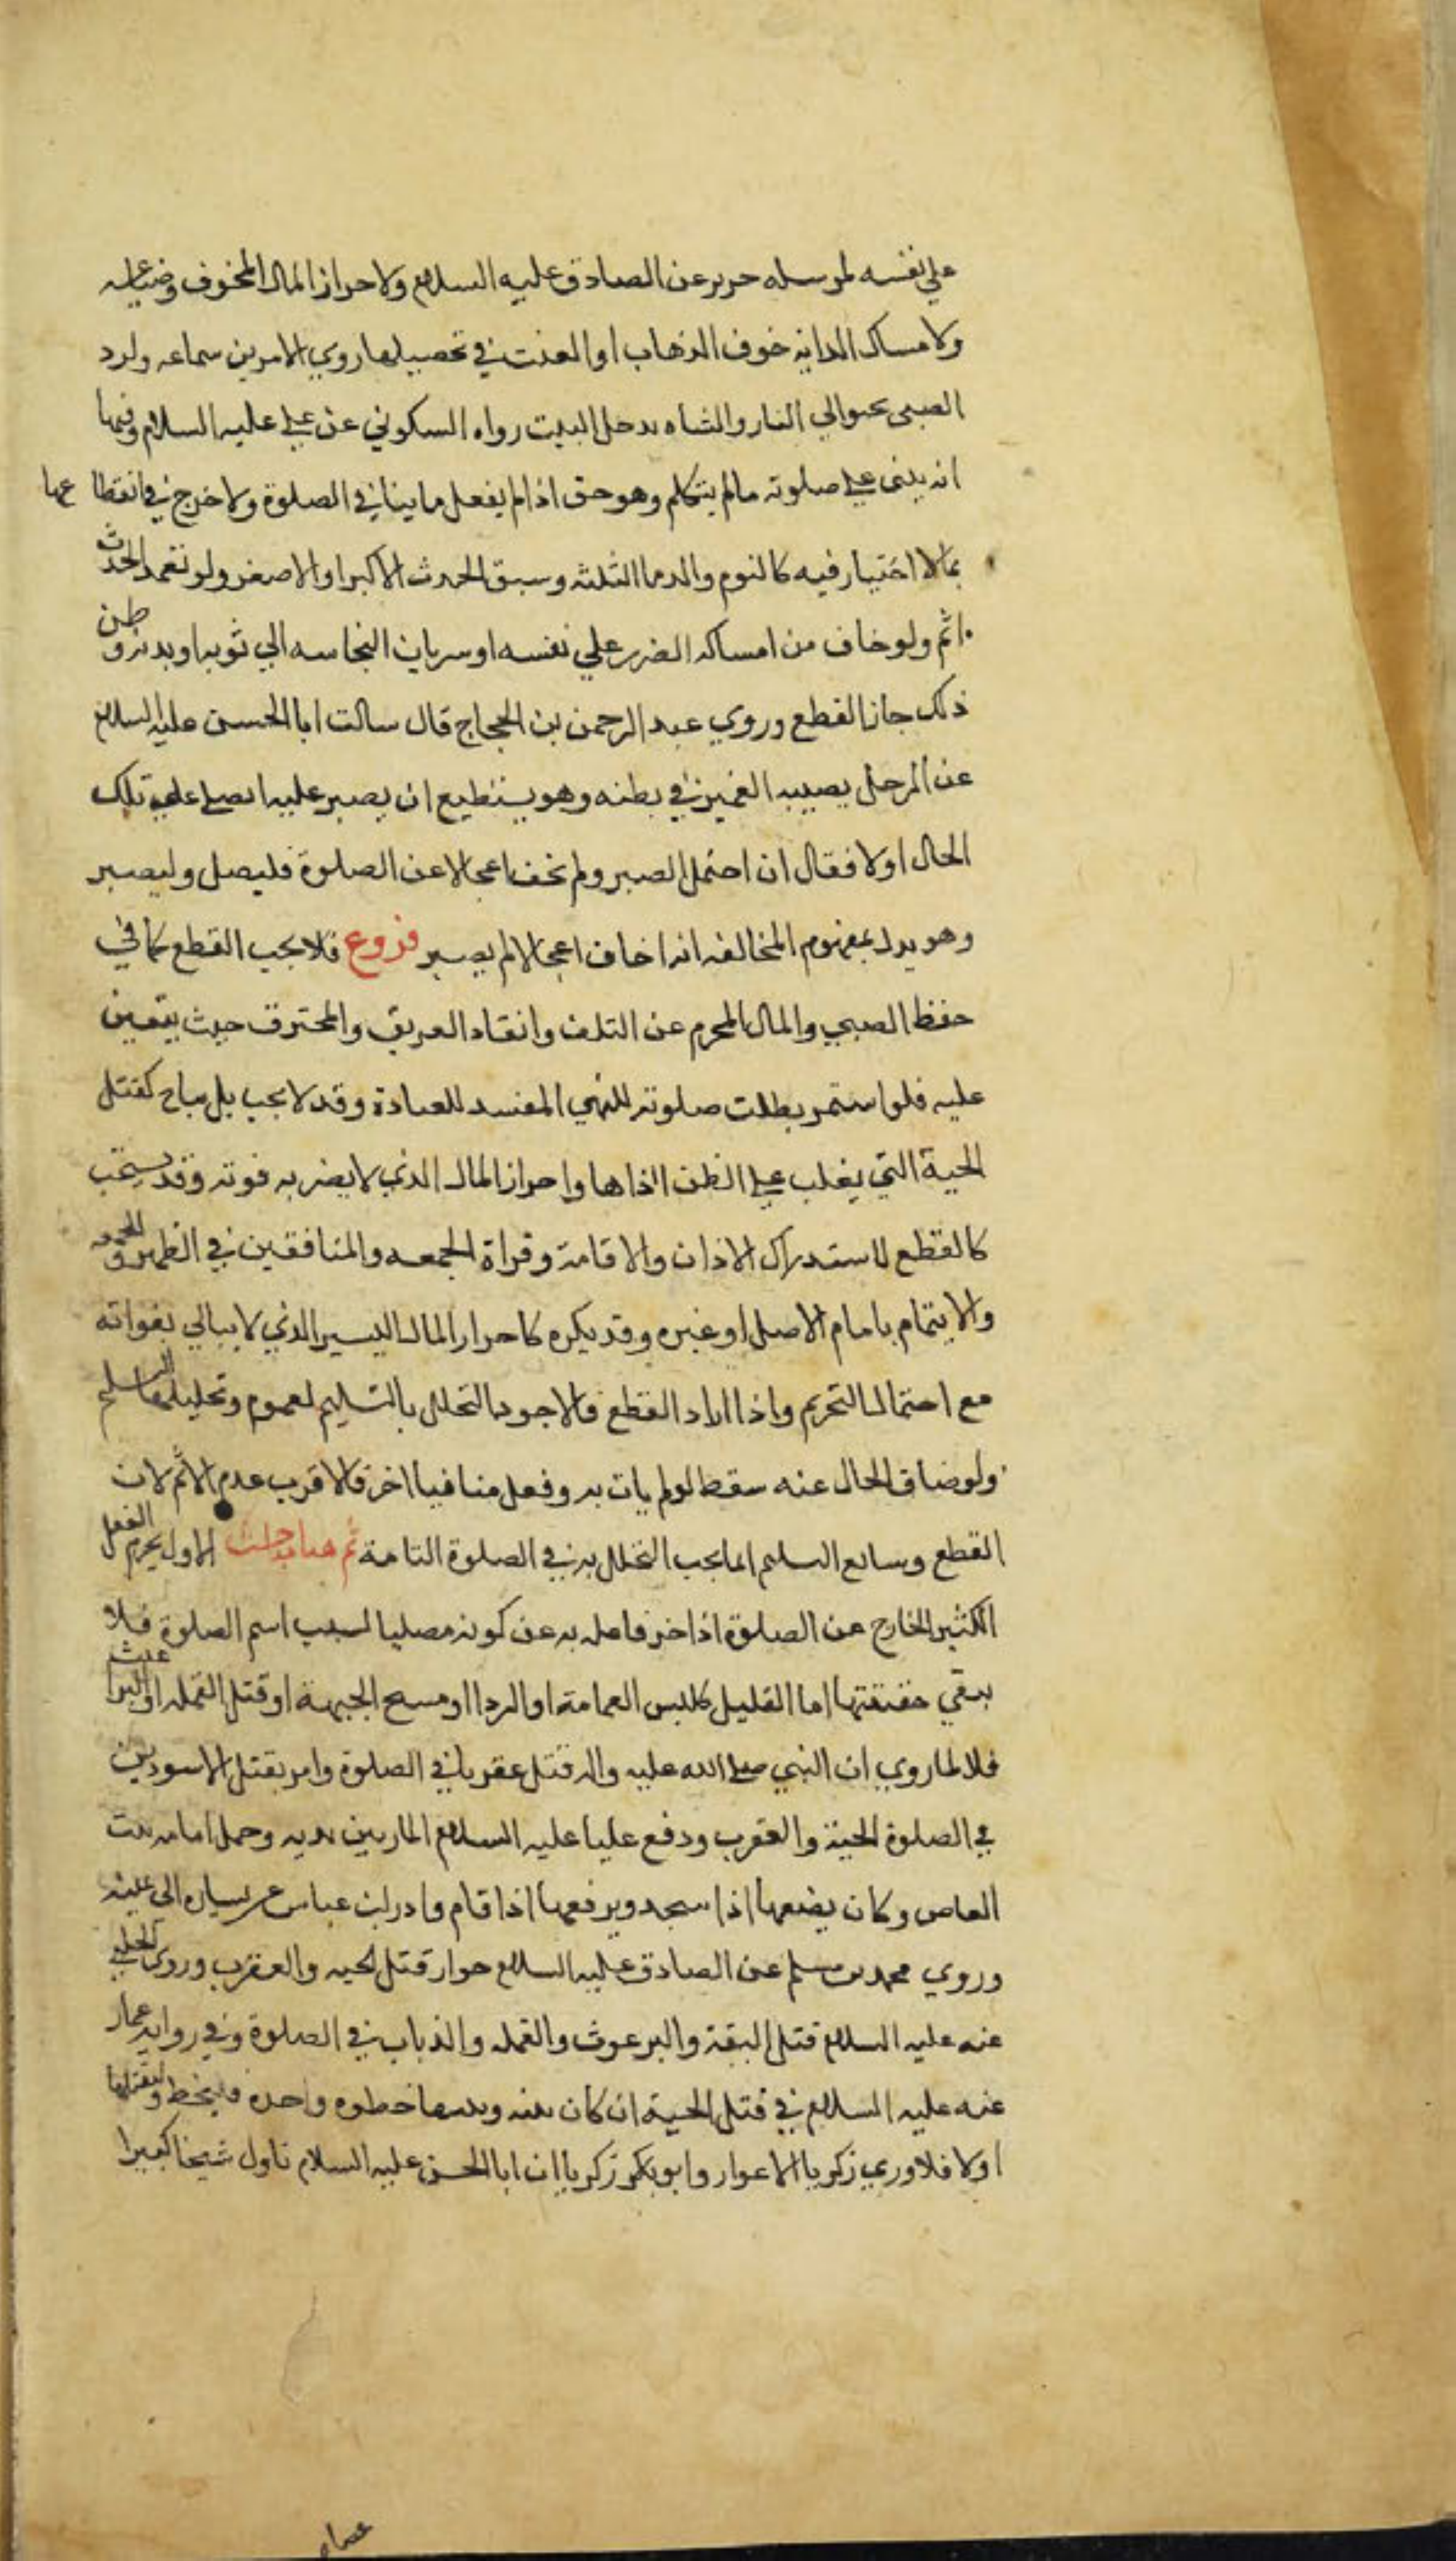 علي نفسه لمرسله حريز عن الصادق عليه السلام ولاحراز المال المخوف وضياعه
ولامساك الدابه خوف الذهاب او العنت في تحصيلها روي الامرين سماعه ولرد
الصبي يحبوالي النار والشاه تدخل البيت رواه السكوني عن علي عليه السلام وفيها
انه يبني علي صلوته مالم يتكلم وهو حق اذا لم يفعل ما ينافي الصلوة ولاخرج في انقطاعها
بمالا اختيار فيه كالنوم والدما الثلثه وسبق الحدث الاكبر او الاصغر ولو تعمد الحدث
اثم ولو خاف من امساكه الضرر علي نفسه او سريان النجاسه الي ثوبه او بدنه وظن
ذلك جاز القطع وروي عبد الرحمن بن الحجاج قال سالت ابا الحسن عليه السلام
عن الرجل يصيبه الغمز في بطنه وهو يستطيع ان يصبر عليه ايصلي علي تلك
الحال اولا فقال ان احتمل الصبر ولم يخف اعجالا عن الصلوة فليصل وليصبر
وهو يدل بمفهوم المخالفه انه اخاف اعجالا لم يصبر فروع فلا يجب القطع كما في
حفظ الصبي والمال المحرم عن التلف وانقاد الغريق والمحترق حيث يتعين
عليه فلو استمر بطلت صلوته للنهي المفسد للعبادة وقد لا يجب بل يباح كقتل
الحية التي يغلب علي الظن اذاها واحراز المال الذي لا يضر به فوته وقد يستحب
كالقطع لاستدراك الاذان والاقامة وقراة الجمعه والمنافقين في الظهر والجمعه
والايتمام بامام الاصل او غيره وقد يكره كاحراز المال اليسير الذي لا يبالي بفواته
مع احتمال التحريم واذا اراد القطع فالاجود التحلل بالتسليم لعموم وتحليلها التسليم
ولو ضاق الحال عنه سقط لو لم يات به وفعل منافيا اخر فالاقرب عدم الاثم لان
القطع وسائع السليم انما يجب التحلل به في الصلوة التامة ثم هنا مباحث الاول يحرم الفعل
الكثير الخارج عن الصلوة اذا اخرج فاعله به عن كونه مصليا لسبب اسم الصلوة فلا
يبقي حقيقتها اما القليل كلبس العمامة او الردا او مسح الجبهة او قتل القمله او البراغيث
فلا لما روي ان النبي صلي الله عليه واله قتل عقربا في الصلوة وامر بقتل الاسودين
في الصلوة الحية والعقرب ودفع عليا عليه السلام المار بين يديه وحمل امامه بنت
العاص وكان يضعها اذا سجد ويرفعها اذا قام وادار ابن عباس عن يساره الي يمينه
وروي محمد بن مسلم عن الصادق عليه السلام جواز قتل الحيه والعقرب وروي الحلبي
عنه عليه السلام قتل البقة والبرعوث والقمله والذباب في الصلوة وفي رواية عمار
عنه عليه السلام في قتل الحية ان كان بينه وبينها خطوه واحده فليخط وليقتلها
اولا فلا وري زكريا الاعوار وابو بكر زكريا ان ابا الحسن عليه السلام ناول شيخا كبيرا